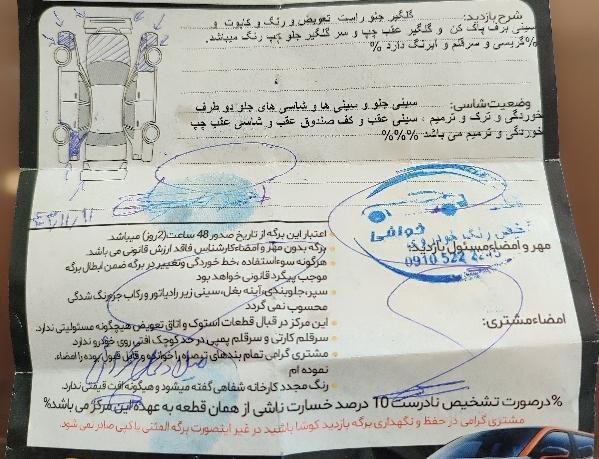 شرح بازدید: گلگیر جلو راست تعویض و رنگ و کاپوت و
سینی برف پاک کن و گلگیر عقب چپ و سر گلگیر جلو چپ رنگ میباشد.
%گریسی و سرقلم و ابرنگ دارد %
وضعیت شاسی: سینی جلو و سینی ها و شاسی های جلو دو طرف
خوردگی و ترک و ترمیم ، سینی عقب و کف صندوق عقب و شاسی عقب چپ
خوردگی و ترمیم می باشد %%%
اعتبار این برگه از تاریخ صدور 48 ساعت (2روز) میباشد.
برگه بدون مهر و امضاء کارشناس فاقد ارزش قانونی می باشد.
هرگونه سوء استفاده ، خط خوردگی و تغییر در برگه ضمن ابطال برگه
موجب پیگرد قانونی خواهد بود
سپر، جلوبندی، آینه بغل، سینی زیر رادیاتور و رکاب جزو رنگ شدگی
محسوب نمی گردد
این مرکز در قبال قطعات استوک و اتاق تعویض هیچگونه مسئولیتی ندارد.
سرقلم کارتی و سرقلم پمپی در حد کوچک افتی روی خودرو ندارد.
مشتری گرامی تمام بندهای تبصره را خوانده و قابل قبول بوده را امضاء
نموده ام
رنگ مجدد کارخانه شفاهی گفته میشود و هیچگونه افت قیمتی ندارد.
مهر و امضاء مسئول بازدید:
خوافی
تشخیص رنگ خودرو
0910 522
امضاء مشتری:
%درصورت تشخیص نادرست 10 درصد خسارت ناشی از همان قطعه به عهده این مرکز می باشد%
مشتری گرامی در حفظ و نگهداری برگه بازدید کوشا باشید در غیر اینصورت برگه المثنی یا کپی صادر نمی شود